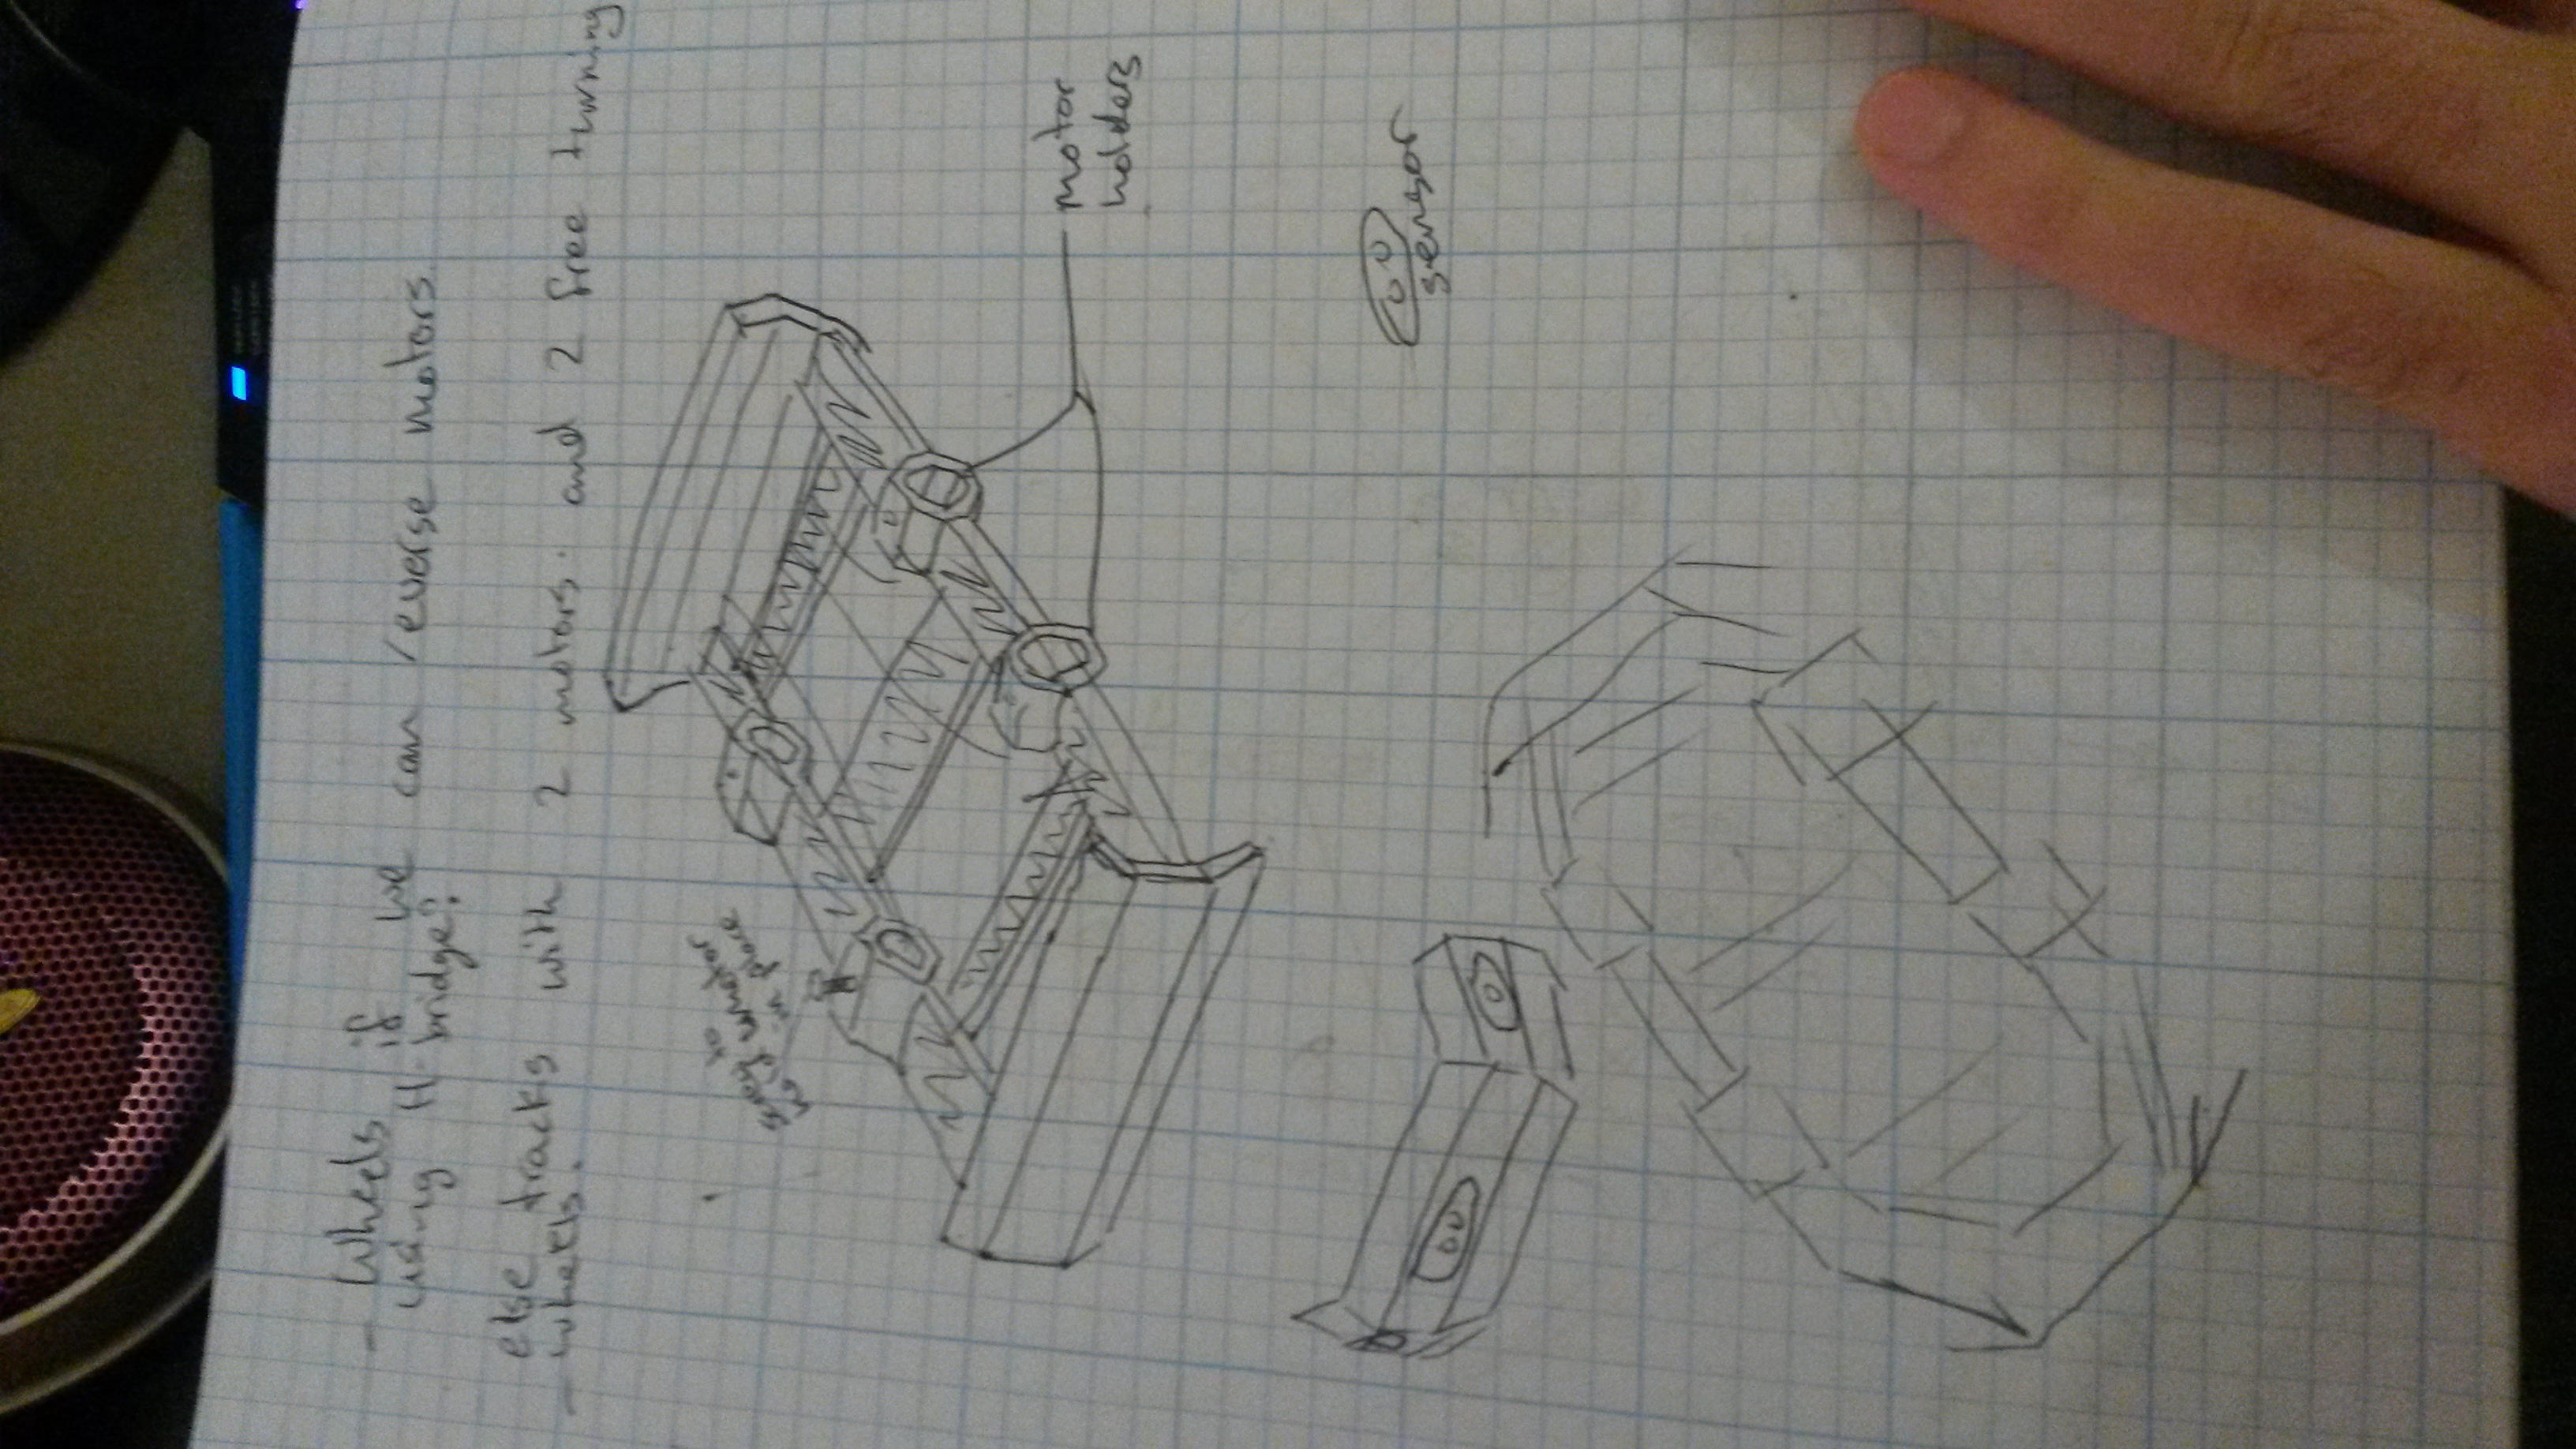 - Wheels if we can reverse motors
using H bridge?
else tracks with 2 motors. and 2 free turning
- wheels.
screw to
hold motor
in place
motor
holders
sensor